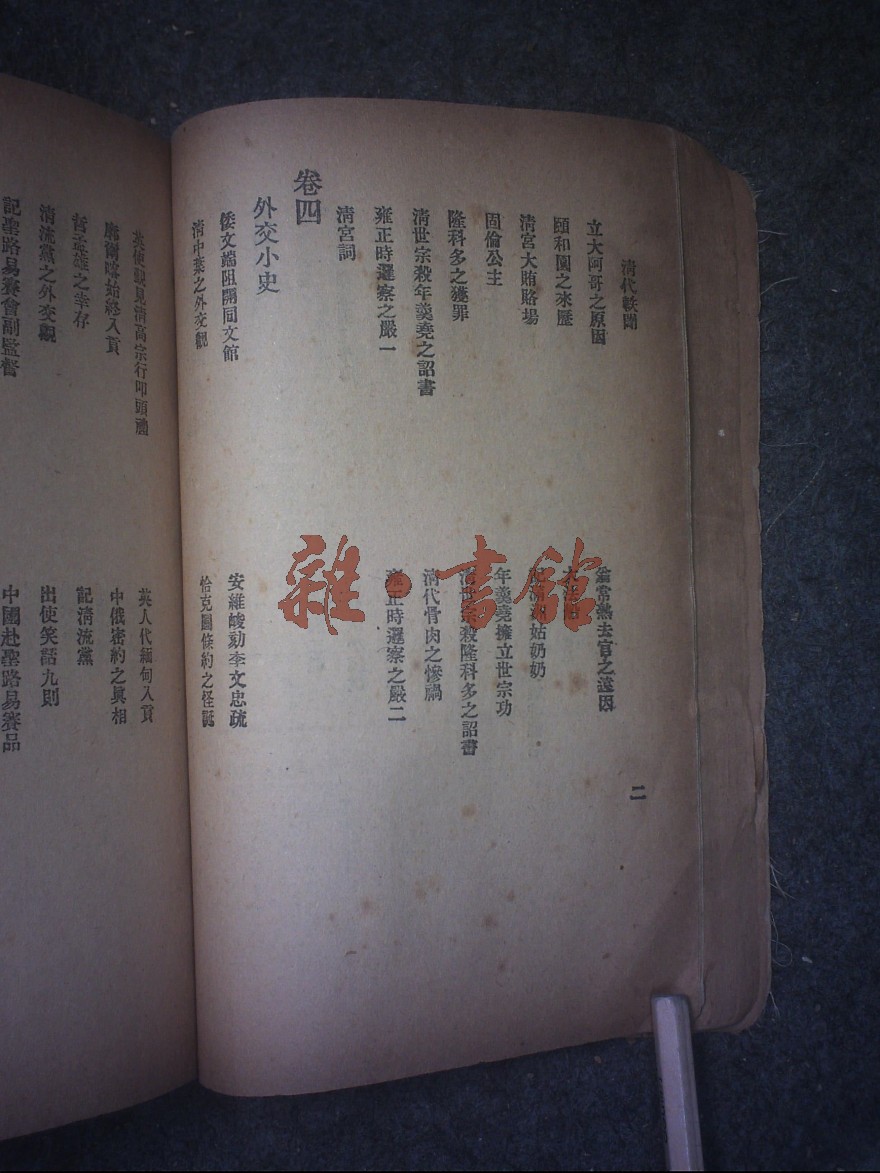 清代軼聞
二
立大阿哥之原因
翁常熟去官之遠因
頤和園之來歷
清宮大賄賂場
姑奶奶
固倫公主
年羹堯擁立世宗功
隆科多之獲罪
清世宗殺隆科多之詔書
清世宗殺年羹堯之詔書
清代骨肉之慘禍
雍正時邏察之嚴一
雍正時邏察之嚴二
清宮詞
卷四
外交小史
倭文端阻開同文館
安維峻劾李文忠疏
清中葉之外交觀
恰克圖條約之怪誕
英使覲見清高宗行叩頭禮
英人代緬甸入貢
廓爾喀始終入貢
中俄密約之眞相
哲孟雄之幸存
記淸流黨
清流黨之外交觀
出使笑話九則
記聖路易賽會副監督
中國赴聖路易賽品
雜·書館